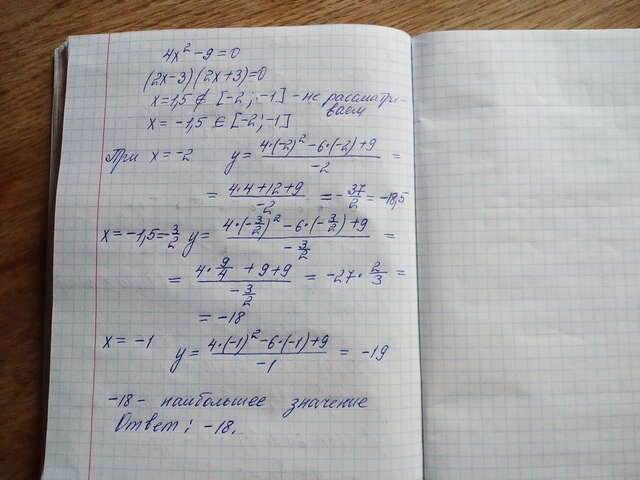 4x² - 9 = 0
(2x-3)(2x+3)=0
x=1,5 ∉ [-2; -1] - не рассматри-
ваем
x = -1,5 ∈ [-2; -1]
При x = -2 y = (4·(-2)² - 6·(-2) + 9)/(-2) =
= (4·4+12+9)/(-2) = -37/2 = -18,5
x = -1,5 = 3/2 y = (4·(-3/2)² - 6·(-3/2) + 9)/(-3/2) =
= (4·9/4 + 9 + 9)/(-3/2) = -27·2/3 =
= -18
x = -1 y = (4·(-1)² - 6·(-1) + 9)/(-1) = -19
-18 - наибольшее значение
Ответ: -18.